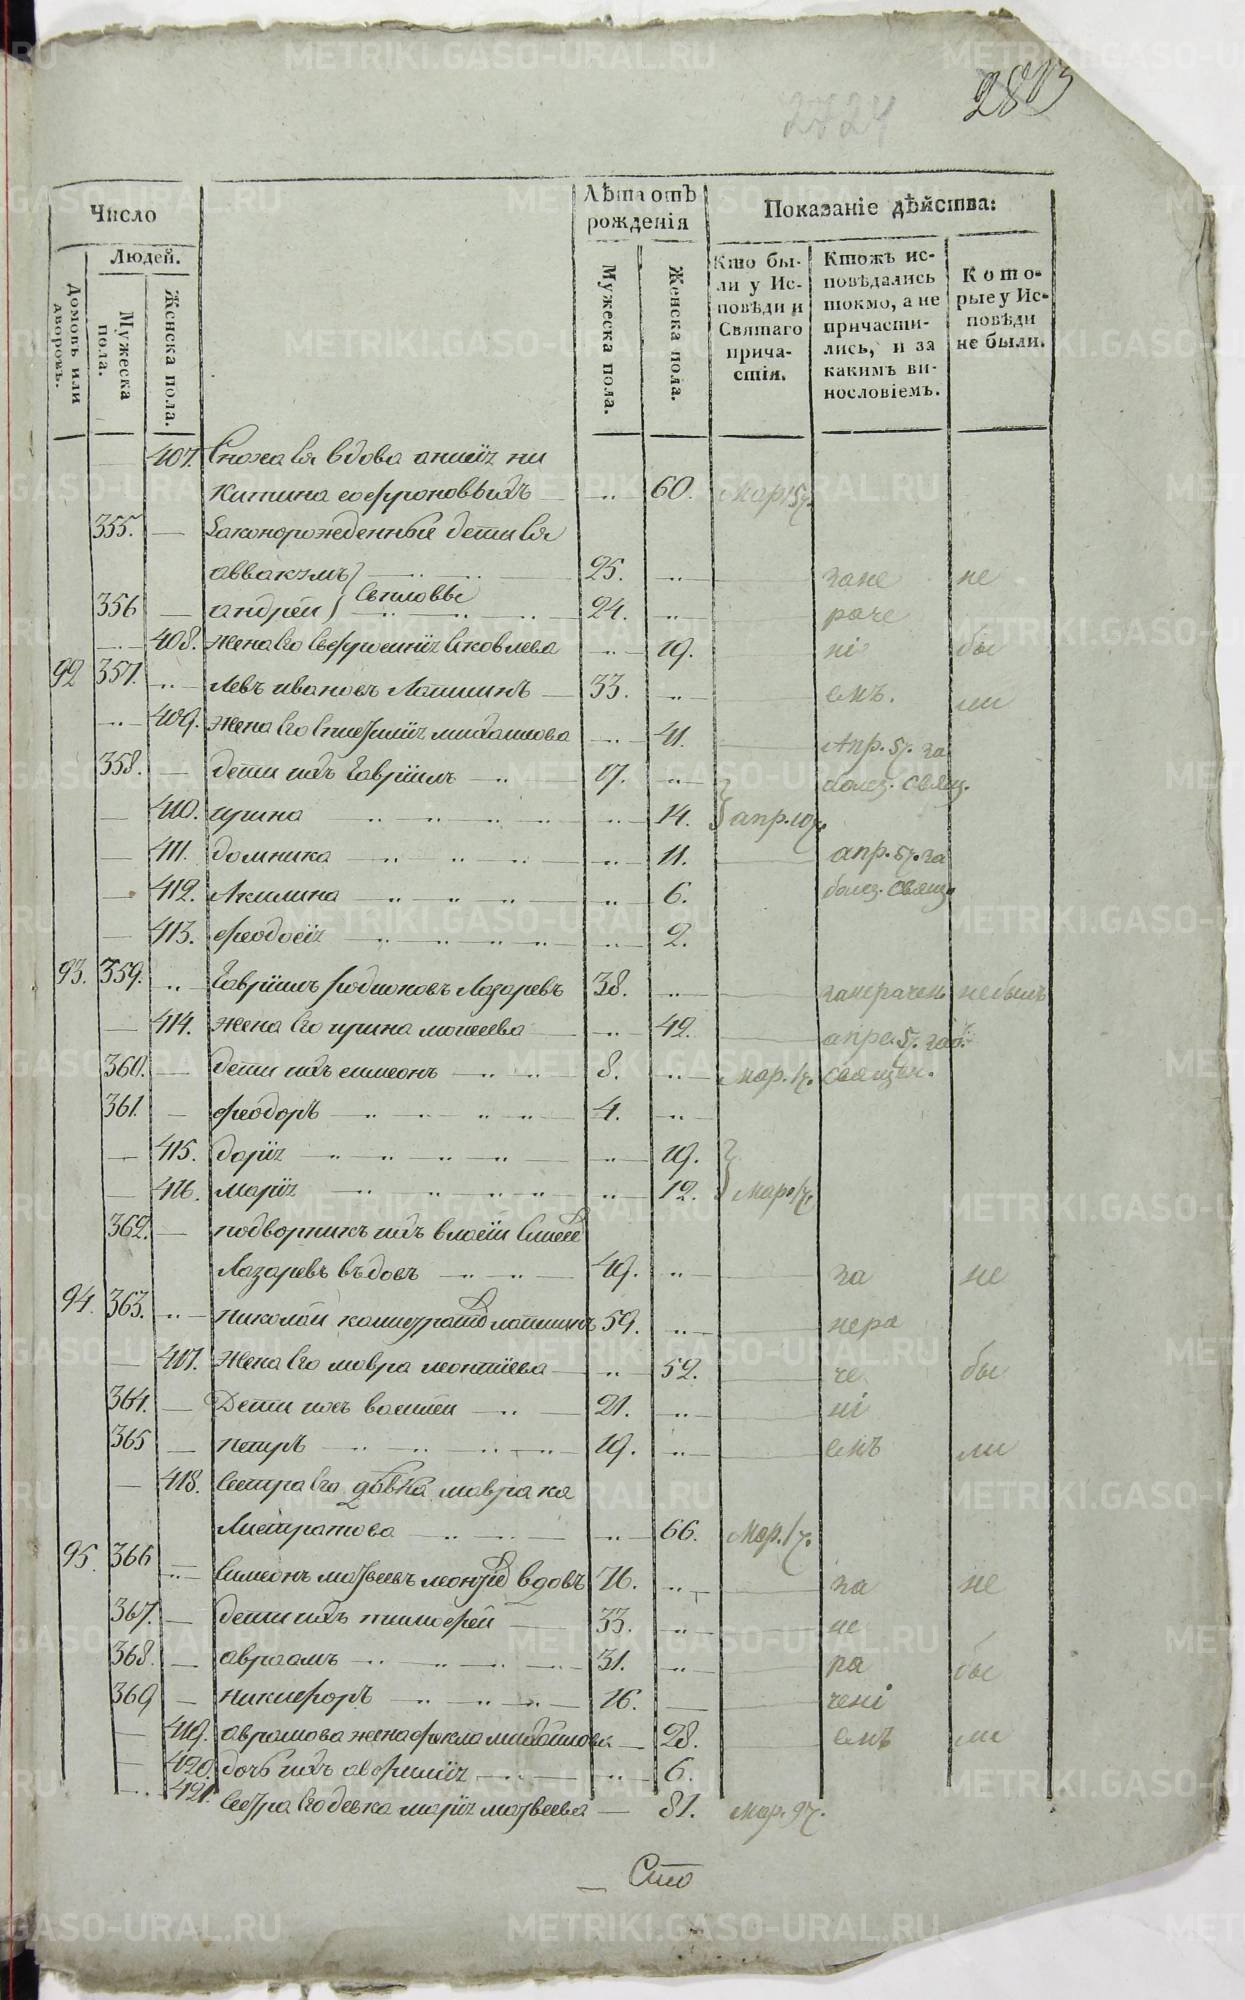 2813
2724
Число
Лѣта отъ рожденія
Показаніе дѣйства:
Людей.
Домовъ или дворовъ.
Мужеска пола.
Женска пола.
Мужеска пола.
Женска пола.
Кто бы-
ли у Ис-
повѣди и
Святаго
прича-
стія.
Ктожъ ис-
повѣдались
токмо, а не
причасти-
лись, и за
какимъ ви-
нословіемъ.
Кото-
рые у Ис-
повѣди
не были.
407. вдова ани
китина софроновыхъ 60. Мар.
355. Законорожденные дети ея
аввакумъ 25. зане не
356 андрей 24. раче
408. жена его Яковлева 19. ні бы
92 357. Левъ ивановъ Лапшинъ 33. емъ. ли
409. жена его михаилова 41. Апр. 5ч. за
358. дети ихъ Гавріилъ 17. болез. свящ.
410. ирина 14. апр. 10ч.
411. домника 11. апр. 5ч. за
412. Акилина 6. болез. свящ.
413. феодосія 2.
93. 359. Гавріилъ родионовъ Лазаревъ 38. занерачен небылъ
414. жена его ирина моисеева 42. апре. 5ч. за
360. дети ихъ симеонъ 8. Мар. 1ч. священ.
361. феодоръ 4.
415. дарія 19.
416. марія 12. Мар. 1ч.
362. подворникъ ихъ
Лазаревъ вдовъ 49. за не
94. 363. николай лапшинъ 59. нера
417. Жена его мавра леонтіева 52. че бы
364. Дети ихъ 21. ні
365 петръ 19. емъ ли
418. Сестра его девка мавра ка
листратова 66. Мар. 1ч.
95. 366 Симеонъ матвеевъ вдовъ 76. за не
367. дети ихъ тимофей 33. не
368. авраамъ 31. ра бы
369 никифоръ 16. чені
419. аврамова жена фекла михаилова 28. емъ ли
420. дочь ихъ 6.
421. Сестра его девка марія матвеева 81. Мар. 9ч.
Сто
METRIKI.GASO-URAL.RU